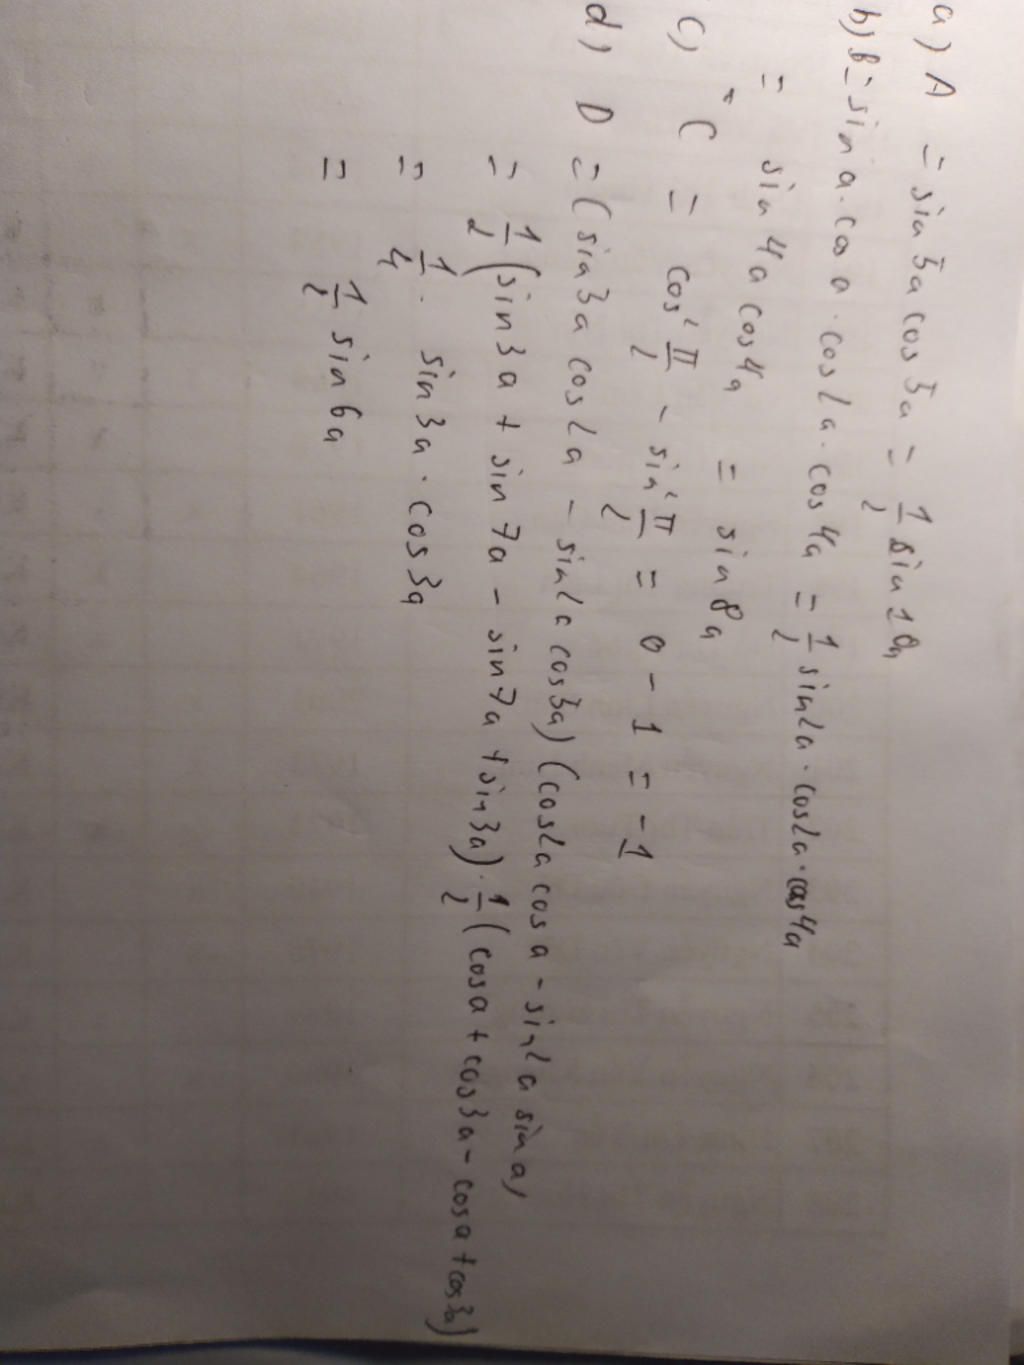 a) A = sin 5a cos 5a = 1/2 sin 10a
b) B = sin a . cos a . cos 2a . cos 4a = 1/2 sin 2a . cos 2a . cos 4a
= sin 4a cos 4a = sin 8a
c) C = cos² π/2 - sin² π/2 = 0 - 1 = -1
d) D = (sin 3a cos 2a - sin 2a cos 3a) (cos 2a cos a - sin 2a sin a)
= 1/2 (sin 3a + sin 7a - sin 7a + sin 3a) . 1/2 (cos a + cos 3a - cos a + cos 3a)
= 1/4 . sin 3a . cos 3a
= 1/2 sin 6a